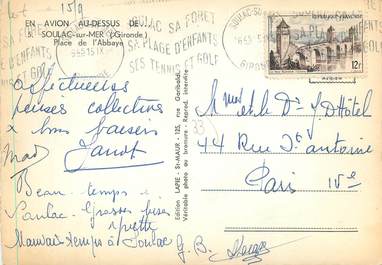 15/9
EN AVION AU-DESSUS DE...
SOULAC-sur-MER (Gironde)
Place de l'Abbaye
SOULAC SA FORET
SA PLAGE D'ENFANTS
SES TENNIS ET GOLF
SA FORET
D'ENFANTS
ET GOLF
GIRONDE
REPUBLIQUE FRANÇAISE
12F
affectueuses
pensées collectives
x bons baisers
Mad Janot
Beau temps à
Soulac Grosses bises
Yvette
Mauvais temps à Soulac
G. B.
Edition LAPIE - St-MAUR - 135, rue Garibaldi
Véritable photo au bromure - Reprod. interdite
M et Me le Dr J. D'Hôtel
44 Rue St antoine
Paris IVe